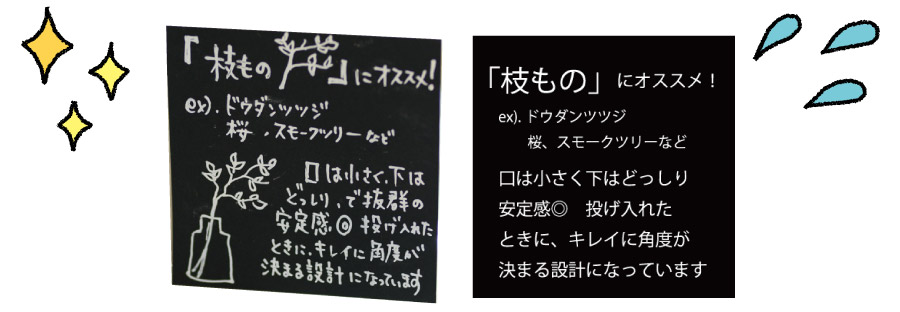 「枝もの」にオススメ!
ex).ドウダンツツジ
桜、スモークツリーなど
口は小さく、下は
どっしり、で抜群の
安定感◎投げ入れた
ときに、キレイに角度が
決まる設計になっています
「枝もの」にオススメ！
ex). ドウダンツツジ
桜、スモークツリーなど
口は小さく下はどっしり
安定感◎　投げ入れた
ときに、キレイに角度が
決まる設計になっています